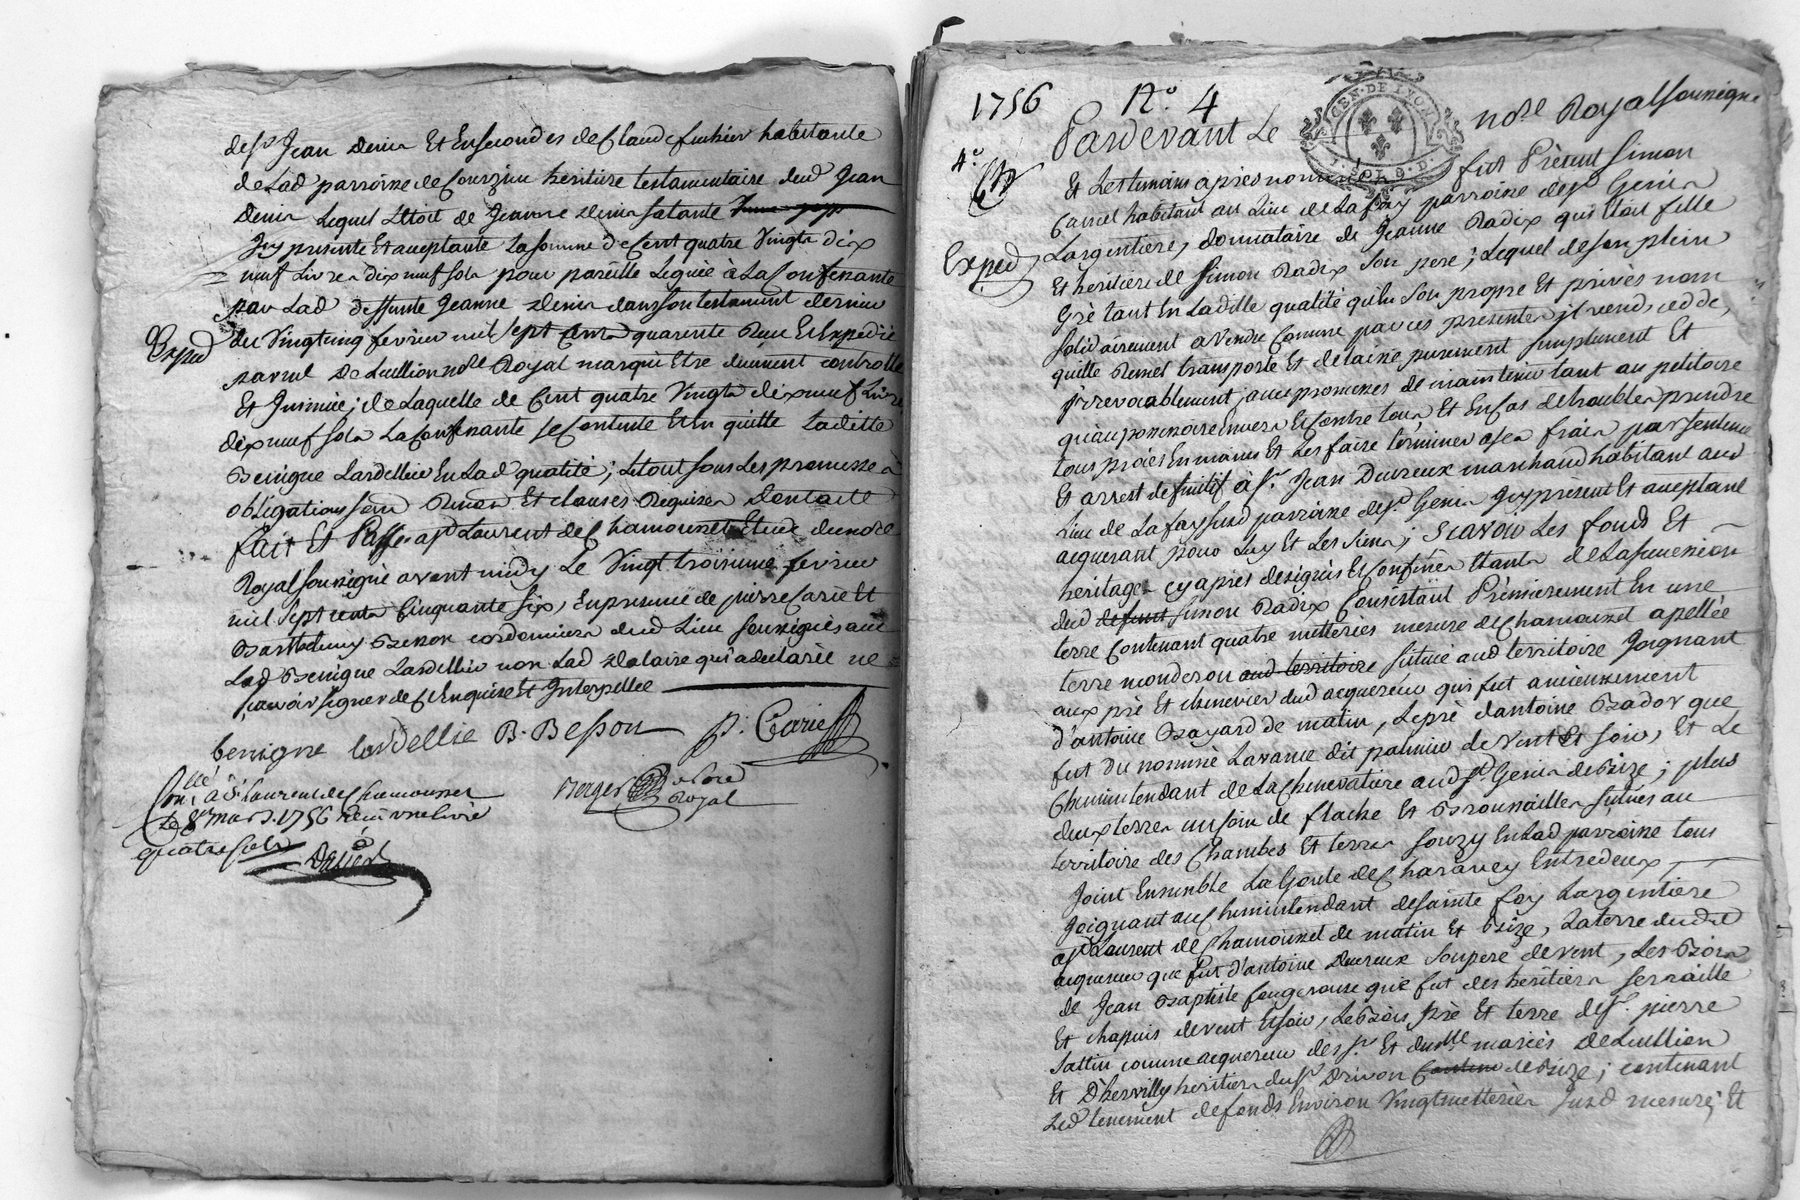 de sr Jean Denis Et En secondes de Claude fuchier habitante
de Lad parroisse de Courzieu heritiere testamentaire dud Jean
Denis Lequel Etoit de Jeanne Denis
Icy presente Et acceptante La somme de Cent quatre Vingts dix
neuf Livres dix neuf sols pour pareille Leguée à La Confenante
par Lad deffunte Jeanne Denis dans son testament dernier
du Vingt cinq fevrier mil sept Cents quarente Receu Et Expedié
Exped
par me DeLuillion nore Royal marqué Etre duement controllé
Et Insinué; de Laquelle de Cent quatre Vingts dix neuf Livres
dix neuf sols La Confenante se Contente Et En quitte Laditte
Benigne Lardellier En Lad qualité; Le tout sous Les promesses
obligations Et clauses Requises Dont acte
fait Et Passé a St Laurent de Chamousset Etude du nore
Royal sousigné avant midy Le Vingt troisieme fevrier
mil sept cents Cinquante six, En presence de pierre Carie Et
Barthelemy Besson cordonniers dud Lieu sousignés avec
Lad Benigne Lardellier non Lad qui a declarée ne
sçavoir signer de ce Enquise Et Interpellée
benigne lardellie B. Besson P. Carie
Berger nore Royal
Conllé à St Laurent de Chamousset
Le 8e mars 1756 Receu une livre
quatre sols
1756 No. 4
GEN. DE LYON
Pardevant Le nore Royal sousigné
4e
Et Les temoins apres nommés fut Présent Simon
habitant au Lieu de La fay parroisse de St Genis
Exped
Largentiere, donnataire de Jeanne Radix qui Etoit fille
Et héritiere de Simon Radix son pere; Lequel de son plein
Gré tant En Laditte qualité qu'En son propre Et privés nom
solidairement a Vendu Comme par ces presentes il vend, cedde,
quitte Remet transporte Et delaisse purement simplement Et
irrevocablement, avec promesses de maintenir tant au petitoire
qu'au possessoire envers Et contre tous Et En cas de troubles prendre
tous procès En mains Et Les faire terminer a ses frais par sentence
Et arrest definitif à sr. Jean Ducreux marchand habitant aud
Lieu de La fay sud parroisse de St Genis Icy présent Et acceptant
acquerant pour Luy Et Les siens; Scavoir Les fonds Et
heritages cy apres designés Et Confinés Etants de La succession
dud defunt Simon Radix Consistant Premierement En une
terre Contenant quatre metterées mesure de Chamousset apellée
terre monderou aud territoire située aud territoire Joignant
aux pré Et chenevier dud acquereur qui fut anciennement
d'antoine Bayard de matin, Le pré d'antoine Bador que
fut du nommé Lavanne dit palmier de vent Et soir, Et Le
Chemin tendant de La Chenevatiere aud St Genis de Bize; plus
deux terres un soin de flache Et Broussailles situés au
territoire des Chambes Et terres Souzy En Lad parroisse tous
Joint Ensemble La Goute de Charavey Entre deux
Joignant au Chemin tendant de Sainte foy Largentiere
a St Laurent de Chamousset de matin Et Bize, La terre dudit
acquereur que fut d'antoine Ducreux son pere de vent, Les Bois
de Jean Baptiste fougerouse que fut des héritiers serraille
Et chapuis de vent Et soir, Le Bois pré Et terre de sr. pierre
Sattin comme acquereur des sr. Et delle mariés DeLuillion
Et D'hervilly heritiers du sr Drivon de Bize; contenant
Led tenement de fonds Environ Vingt metterées susd mesure; Et